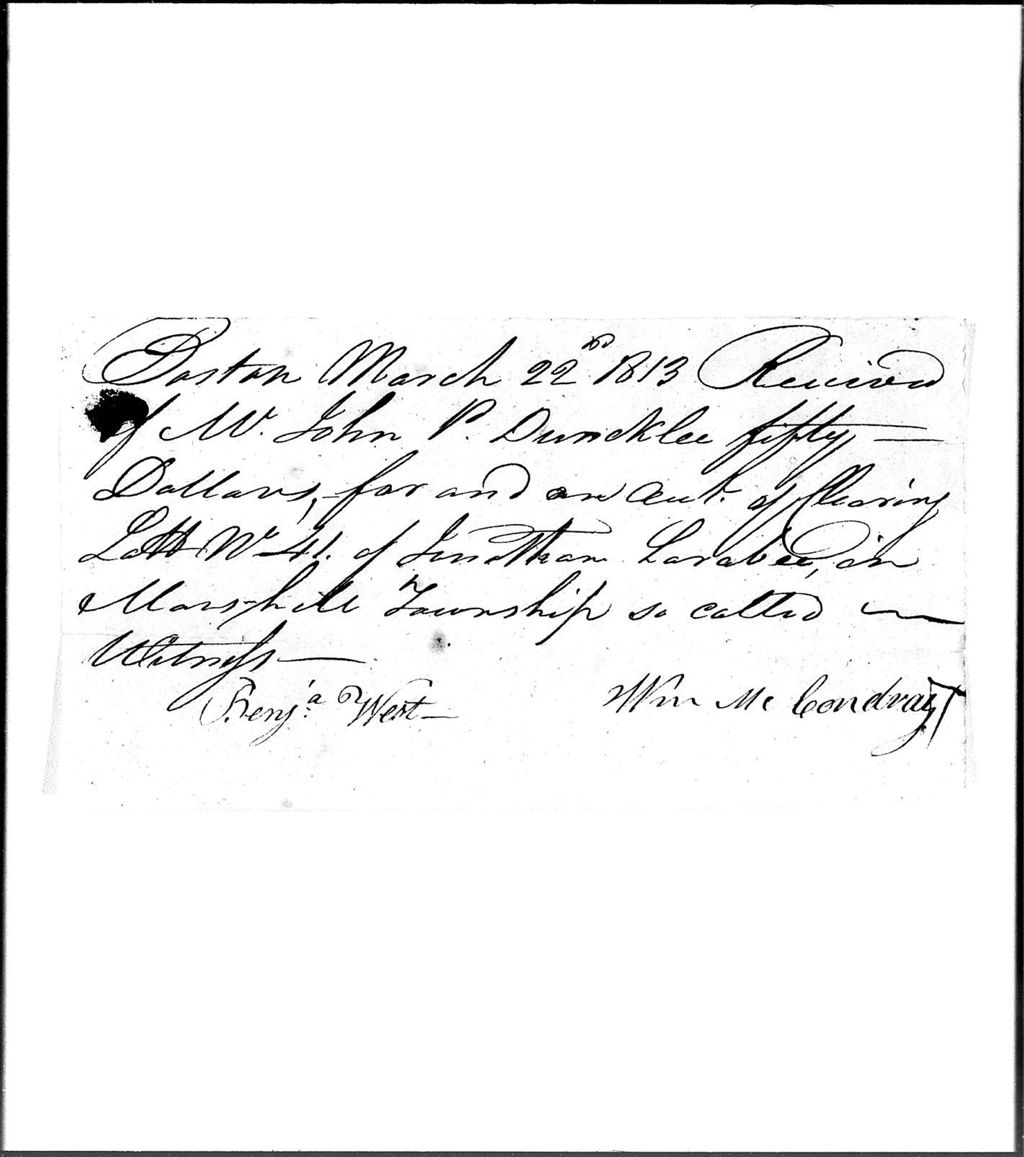 Boston March 22nd 1813 Received
of Mr. John P. Duncklee fifty —
Dollars, for and on acnt. of Clearing
Lott No 41. of Larabee, in
Marshhill Township so called —
Witness —
Benja. West — Wm Mc Condray